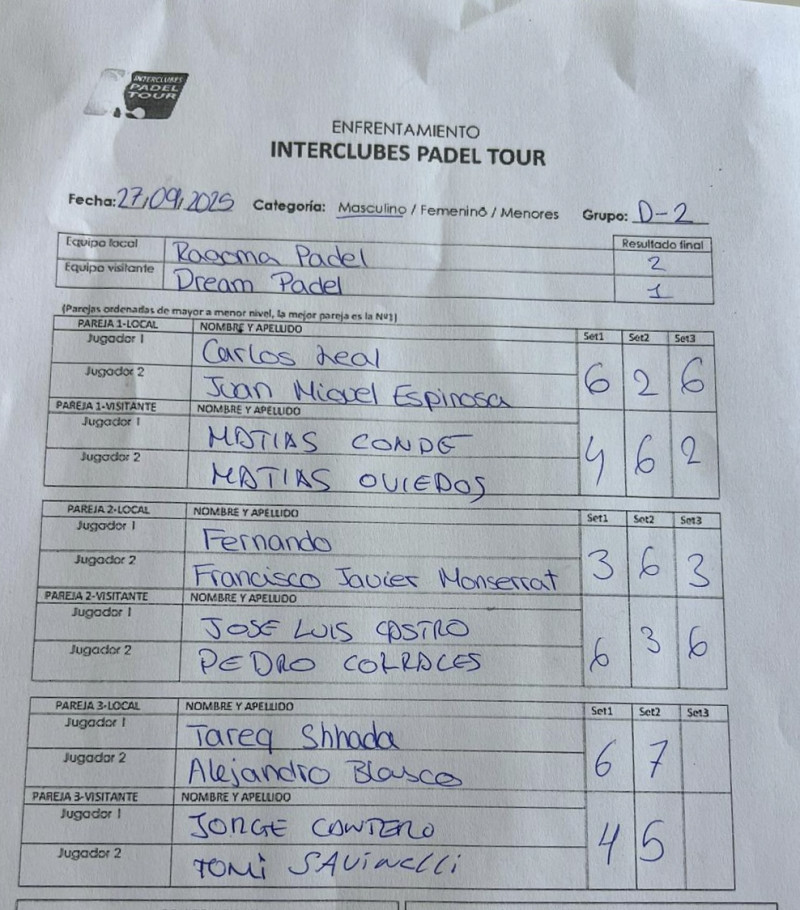 INTERCLUBES
PADEL
TOUR
ENFRENTAMIENTO
INTERCLUBES PADEL TOUR
Fecha: 27/09/2025 Categoría: Masculino / Femenino / Menores Grupo: D-2
Equipo local Racoma Padel Resultado final 2
Equipo visitante Dream Padel 1
(Parejas ordenadas de mayor a menor nivel, la mejor pareja es la Nº1)
PAREJA 1-LOCAL NOMBRE Y APELLIDO Set1 Set2 Set3
Jugador 1 Carlos Leal
Jugador 2 Juan Miguel Espinosa 6 2 6
PAREJA 1-VISITANTE NOMBRE Y APELLIDO
Jugador 1 MATIAS CONDE
Jugador 2 MATIAS OVIEDOS 4 6 2
PAREJA 2-LOCAL NOMBRE Y APELLIDO Set1 Set2 Set3
Jugador 1 Fernando
Jugador 2 Francisco Javier Monserrat 3 6 3
PAREJA 2-VISITANTE NOMBRE Y APELLIDO
Jugador 1 JOSE LUIS CASTRO
Jugador 2 PEDRO CORRACES 6 3 6
PAREJA 3-LOCAL NOMBRE Y APELLIDO Set1 Set2 Set3
Jugador 1 Tareq Shhada
Jugador 2 Alejandro Blasco 6 7
PAREJA 3-VISITANTE NOMBRE Y APELLIDO
Jugador 1 JORGE CANTERO
Jugador 2 TOMI SAVINELLI 4 5